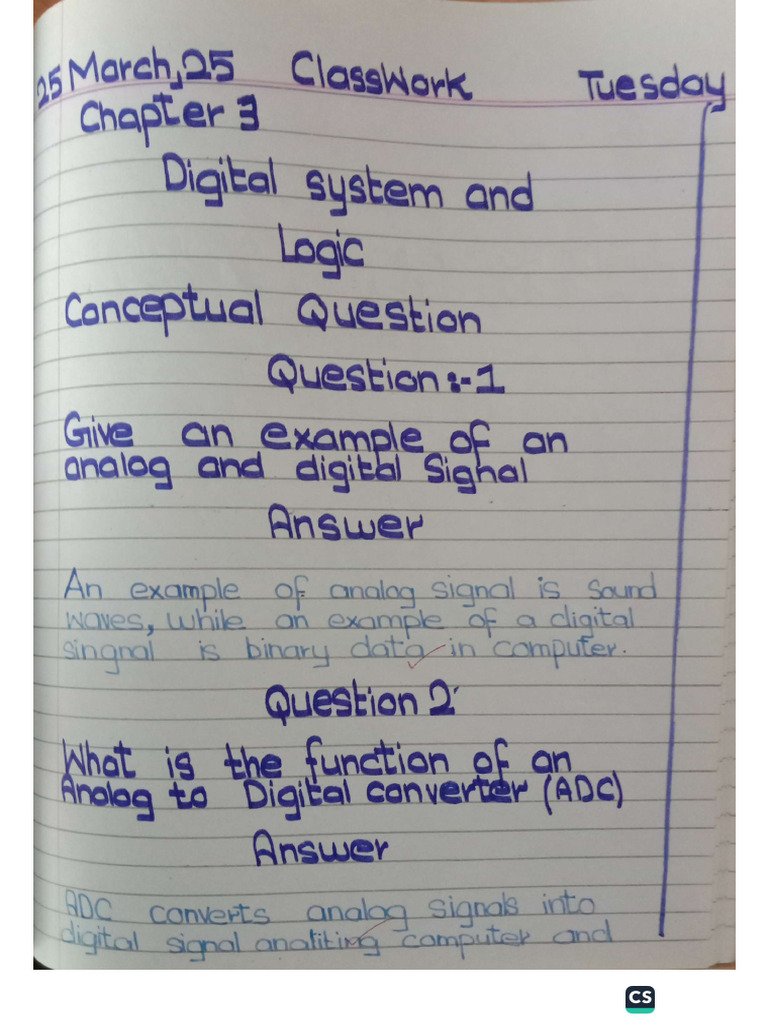 25 March,25 ClassWork Tuesday
Chapter 3
Digital system and
Logic
Conceptual Question
Question:-1
Give an example of an
analog and digital Signal
Answer
An example of analog signal is sound
waves, while an example of a digital
singnal is binary data in computer.
Question 2
What is the function of an
Analog to Digital converter (ADC)
Answer
ADC converts analog signals into
digital signal analiting computer and
CS